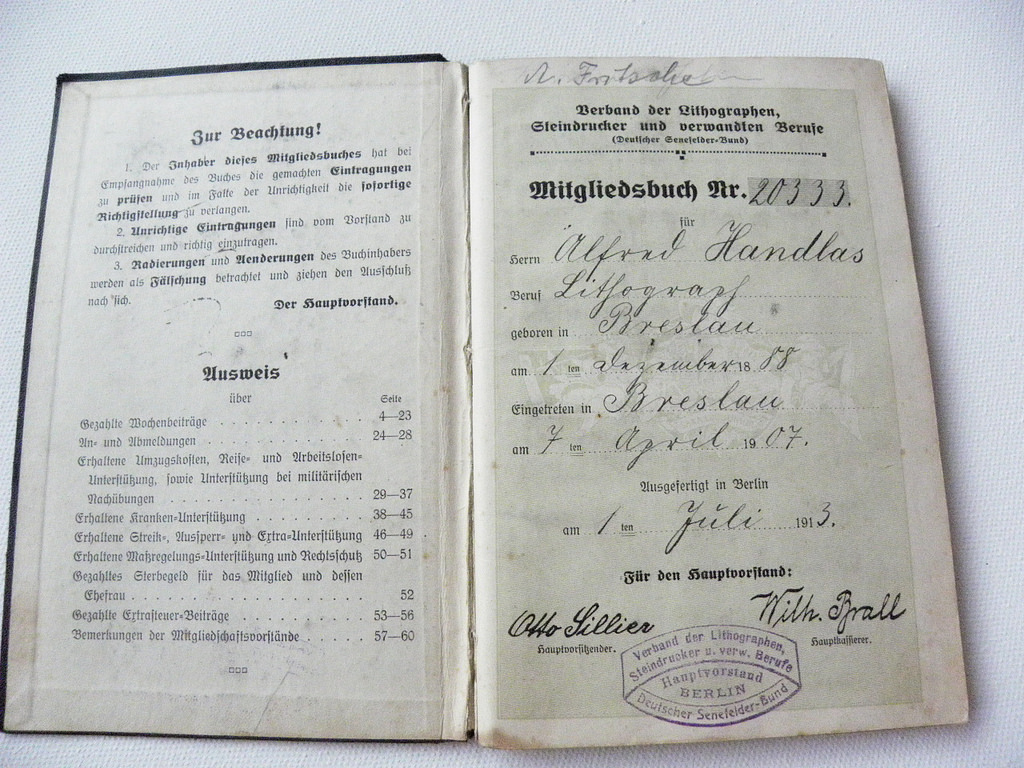 Zur Beachtung!
1. Der Inhaber dieses Mitgliedsbuches hat bei
Empfangnahme des Buches die gemachten Eintragungen
zu prüfen und im Falle der Unrichtigkeit die sofortige
Richtigstellung zu verlangen.
2. Unrichtige Eintragungen sind vom Vorstand zu
durchstreichen und richtig einzutragen.
3. Radierungen und Aenderungen des Buchinhabers
werden als Fälschung betrachtet und ziehen den Ausschluß
nach sich.
Der Hauptvorstand.
Ausweis
über Seite
Gezahlte Wochenbeiträge . . . . . . . . . . 4—23
An- und Abmeldungen . . . . . . . . . . . 24—28
Erhaltene Umzugskosten, Reise- und Arbeitslosen-
Unterstützung, sowie Unterstützung bei militärischen
Nachübungen . . . . . . . . . . . . . 29—37
Erhaltene Kranken-Unterstützung . . . . . . . 38—45
Erhaltene Streik-, Aussperr- und Extra-Unterstützung 46—49
Erhaltene Maßregelungs-Unterstützung und Rechtschutz 50—51
Gezahltes Sterbegeld für das Mitglied und dessen
Ehefrau . . . . . . . . . . . . . . . 52
Gezahlte Extrasteuer-Beiträge . . . . . . . . 53—56
Bemerkungen der Mitgliedschaftsvorstände . . . . . 57—60
Verband der Lithographen,
Steindrucker und verwandten Berufe
(Deutscher Senefelder-Bund)
Mitgliedsbuch Nr. 20333.
für
Herrn Alfred Handlas
Beruf Lithograph
geboren in Breslau
am 1 ten Dezember 18 88
Eingetreten in Breslau
am 7 ten April 19 07.
Ausgefertigt in Berlin
am 1 ten Juli 191 3.
Für den Hauptvorstand:
Otto Sillier Wilh. Brall
Hauptvorsitzender. Hauptkassierer.
Verband der Lithographen,
Steindrucker u. verw. Berufe
Hauptvorstand
BERLIN
Deutscher Senefelder-Bund